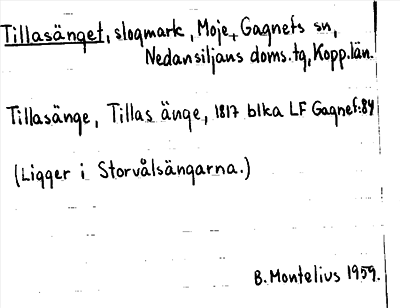 Tillasänget, slogmark, Moje, Gagnefs sn,
Nedansiljans doms.tg, Kopp.län.
Tillasänge, Tillas änge, 1817 blka LF Gagnef:84
(Ligger i Storvålsängarna.)
B. Montelius 1959.